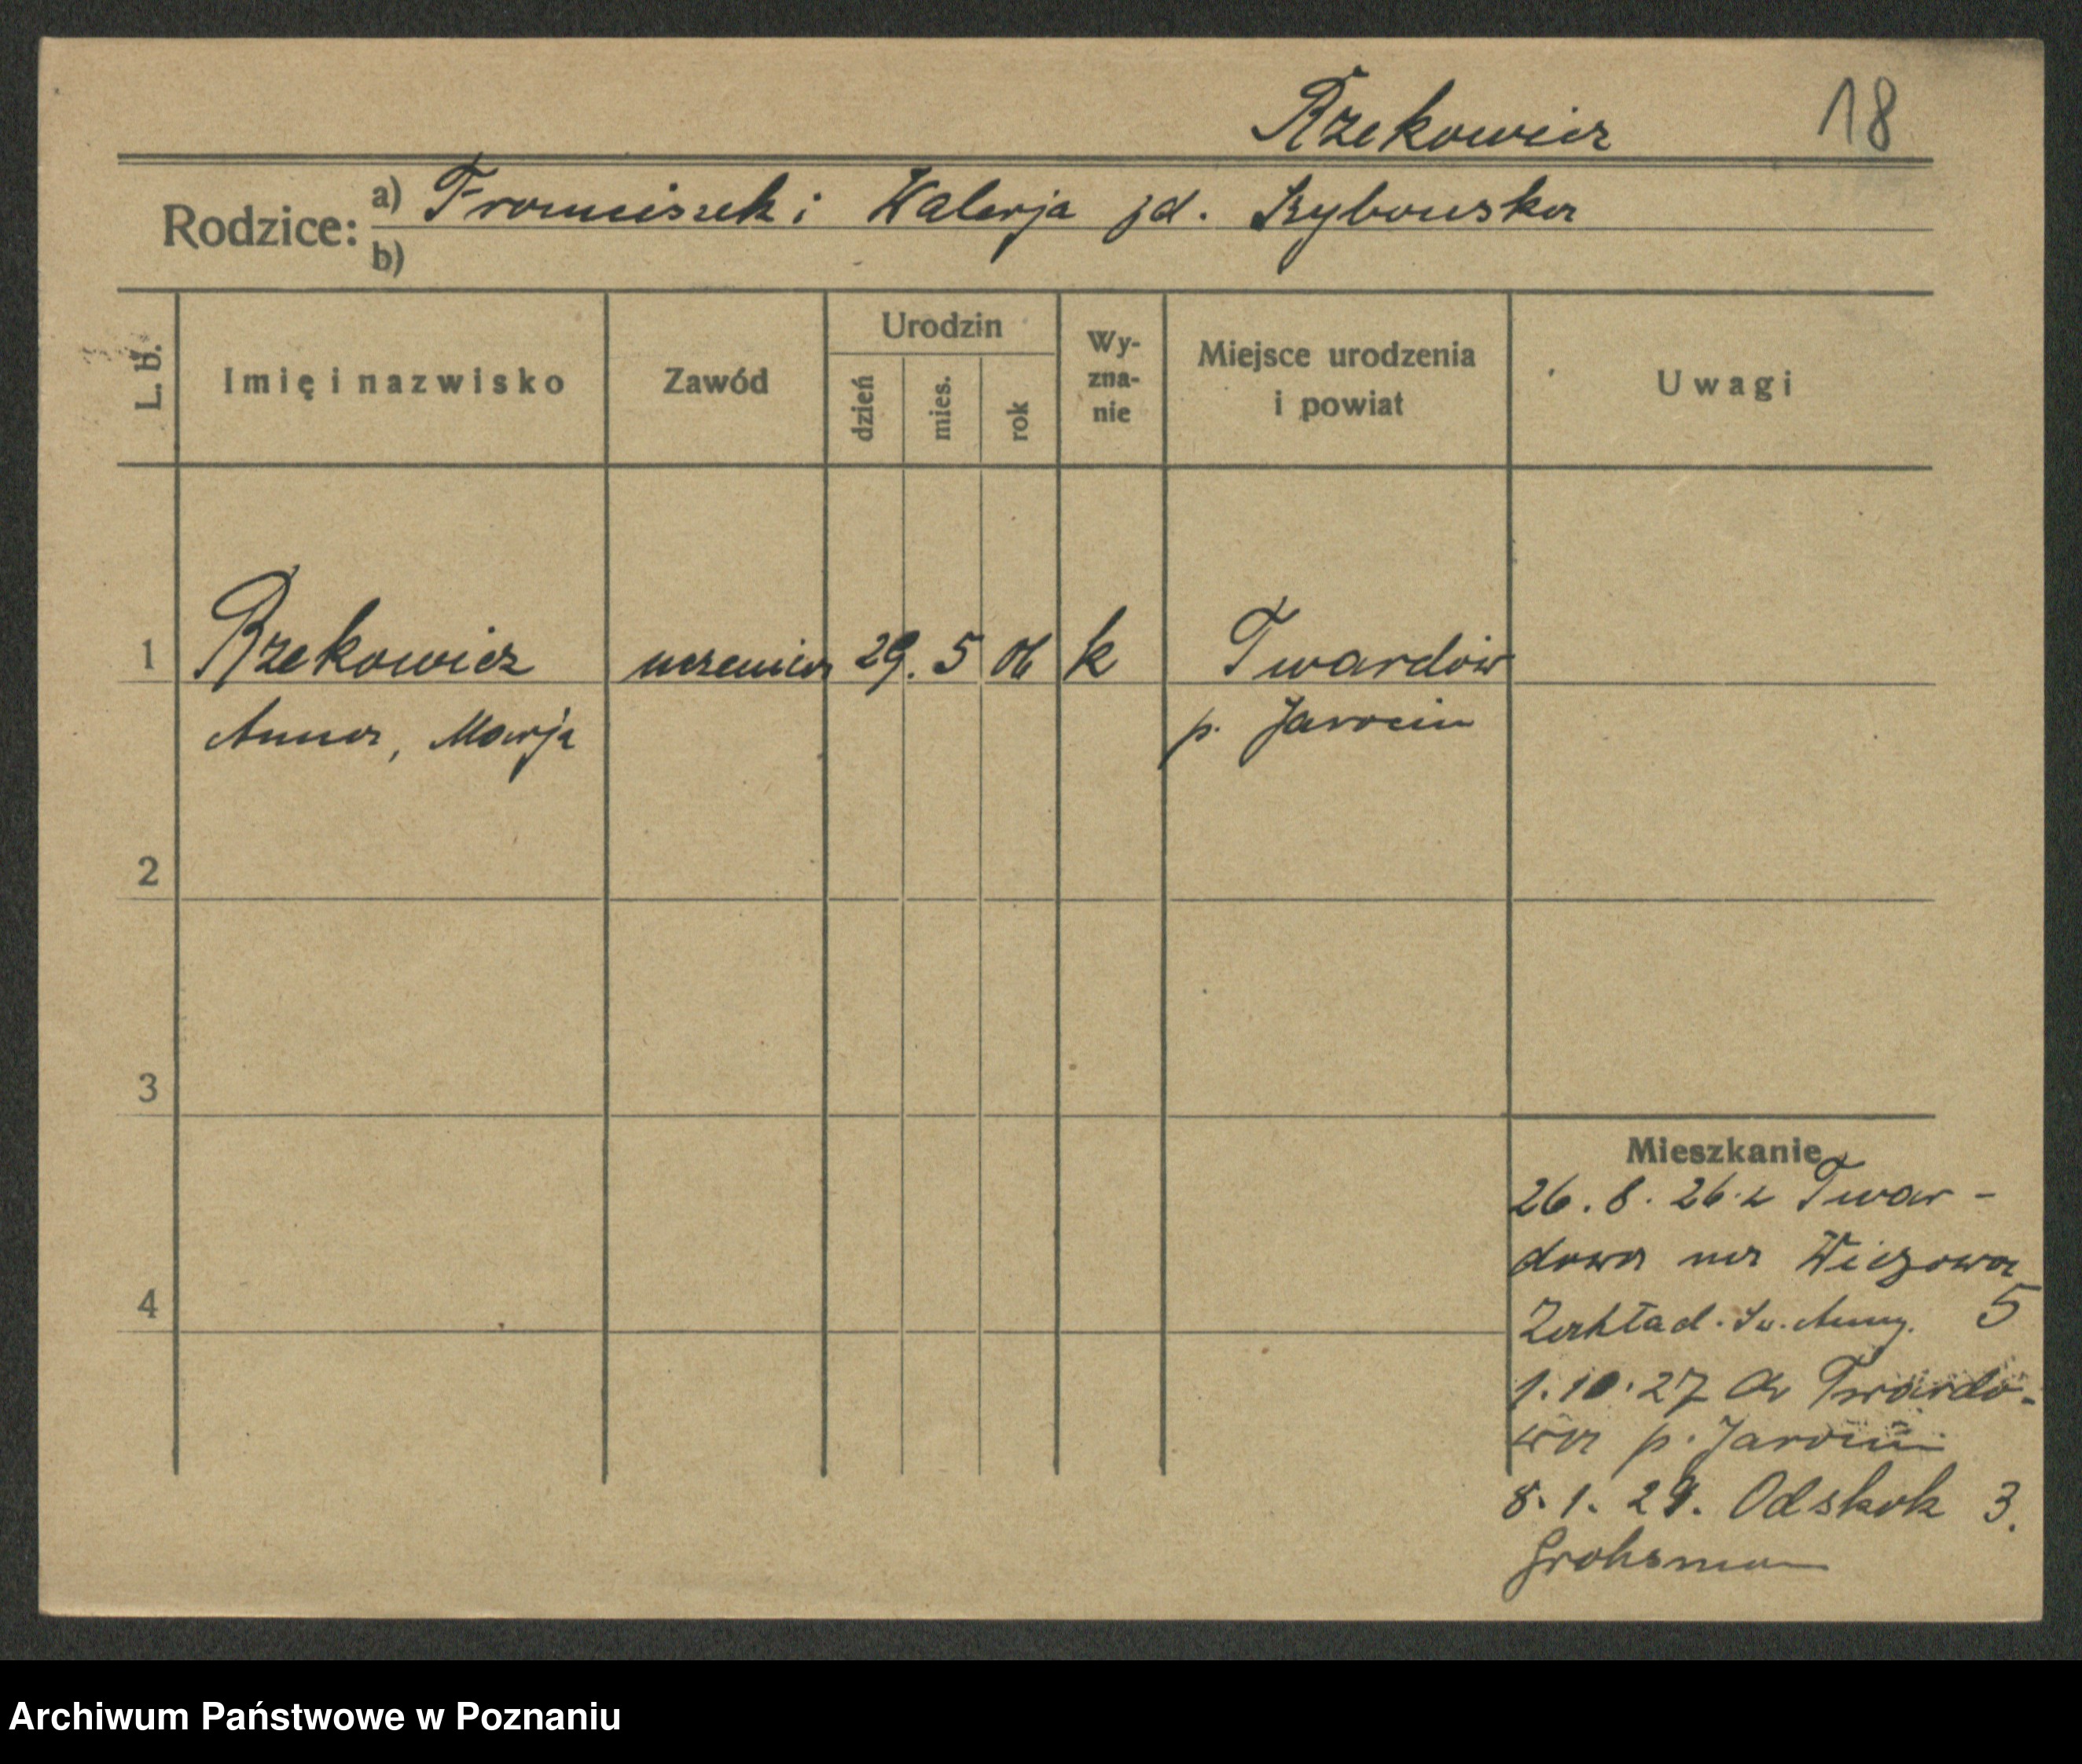 Rzekowicz 18
Rodzice: a) Franciszek i Walerja zd. Szybowska
b)
L. b. Imię i nazwisko Zawód Urodzin dzień mies. rok Wy-zna-nie Miejsce urodzenia i powiat Uwagi
1 Rzekowicz uczenica 29. 5 06 k Twardów
Anna, Marja p. Jarocin
2
3
4
Mieszkanie
26. 8. 26 z Twar-
dowa na
Zakład. Św. Anny. 5
1. 10. 27 do Twardo-
wa p. Jarocin
8. 1. 29. Odskok 3.
Grohsman
Archiwum Państwowe w Poznaniu